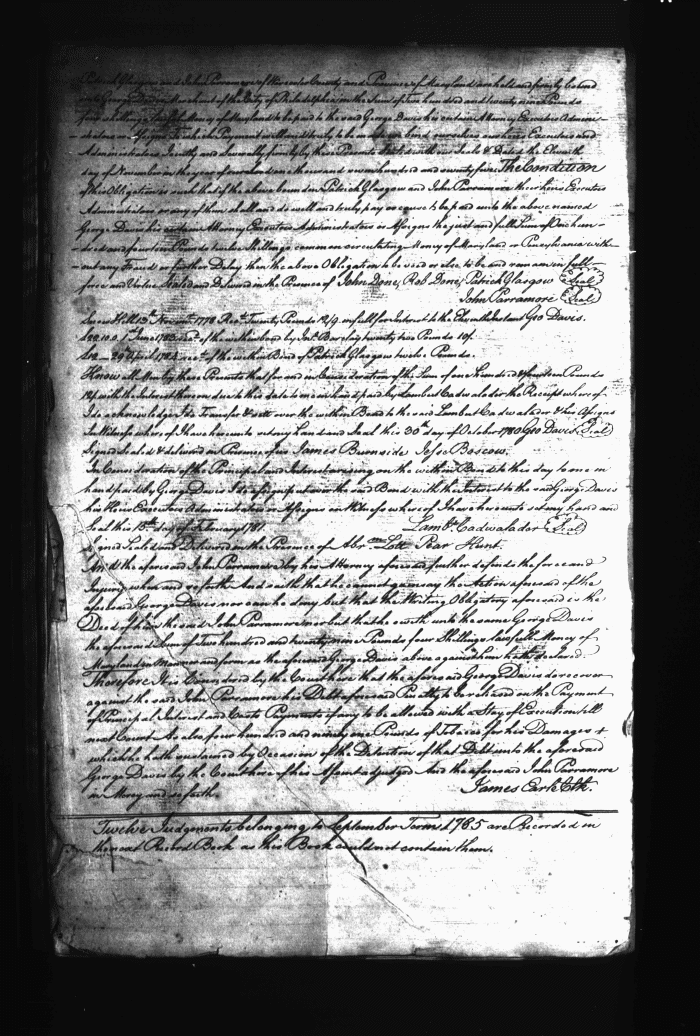 Patrick Glasgow and John Parramore of Worcester County and Province of Maryland are held and firmly bound
unto George Davis Merchant of the City of Philadelphia in the Sum of two hundred and twenty nine Pounds
four shillings lawful Money of Maryland to be paid to the said George Davis his certain Attorney Executors Admini-
-strators or Assigns To which Payment well and truly to be made we bind ourselves our heirs Executors and
Administrators Jointly and Severally firmly by these Presents Sealed with our Seals & Dated the Eleventh
day of November in the year of our Lord one thousand seven hundred and seventy five The Condition
of this Obligation is such that if the above bounden Patrick Glasgow and John Parramore their heirs Executors
Administrators or any of them shall and do well and truly pay or cause to be paid unto the above named
George Davis his certain Attorney Executors Administrators or Assigns the just and full Sum of One hun-
-dred and fourteen Pounds twelve Shillings common circulating Money of Maryland or Pensylvania with-
-out any Fraud or further Delay then the above Obligation to be void or else to be and remain in full
force and Virtue Sealed and Delivered in the Presence of John Done, Rob Done, Patrick Glasgow Seal
John Parramore Seal
Snow Hill 13th Novemr. 1778 Recd. Twenty Pounds 12/9 in full for Interest to the Eleventh Instant Geo Davis.
1st June 1783 recd. of the within bond by Barclay twenty two Pounds 10/.
£12 - 29 April 1784 recd. of the within Bond of Patrick Glasgow twelve Pounds.
Know all Men by these Presents that for and in Consideration of the Sum of one hundred & fourteen Pounds
12/ with the Interest thereon due to this date to me in hand paid by Lambert Cadwalader the Receipt where of
I do acknowledge I do Transfer & sett over the within Bond to the said Lambert Cadwalader & his Assigns
In Witness where of I have hereunto set my hand and Seal this 30th day of October 1780 Geo Davis Seal
Signed Sealed & delivered in Presence of us James Burnside Jesse Boscow.
In Consideration of the Principal and Interest arising on the within Bond to this day to me in
hand paid by George Davis I do assign & set over the said Bond with the Interest to the said George Davis
his Heirs Executors Administrators or Assigns in Witness where of I have hereunto set my hand and
Seal this 13th day of February 1781. Lambt. Cadwalader Seal
Signed Sealed and Delivered in the Presence of Abr. Lott Pear Hunt.
And the aforesaid John Parramore by his Attorney aforesaid further defends the force and
Injury when and so forth And saith that he cannot gainsay the Action aforesaid of the
aforesaid George Davis nor can he deny but that the Writing Obligatory aforesaid is the
Deed of him the said John Parramore nor but that he oweth unto the same George Davis
the aforesaid Sum of Two hundred and twenty nine Pounds four Shillings lawfull Money of
Maryland in Manner and form as the aforesaid George Davis above against him hath declared.
Therefore It is Considered by the Court here that the aforesaid George Davis do recover
against the said John Parramore his Debt aforesaid Penalty to be released on the Payment
of Principal Interest and Costs Payments if any to be allowed with a Stay of Execution till
next Court As also four hundred and ninety one Pounds of Tobacco for his Damages +
which he hath sustained by Occasion of the Detention of that Debt unto the aforesaid
George Davis by the Court here of his Assent adjudged And the aforesaid John Parramore
in Mercy and so forth. James Earle Clk.
Twelve Judgments belonging to September Term 1785 are Recorded in
the next Record Book as this Book could not contain them.